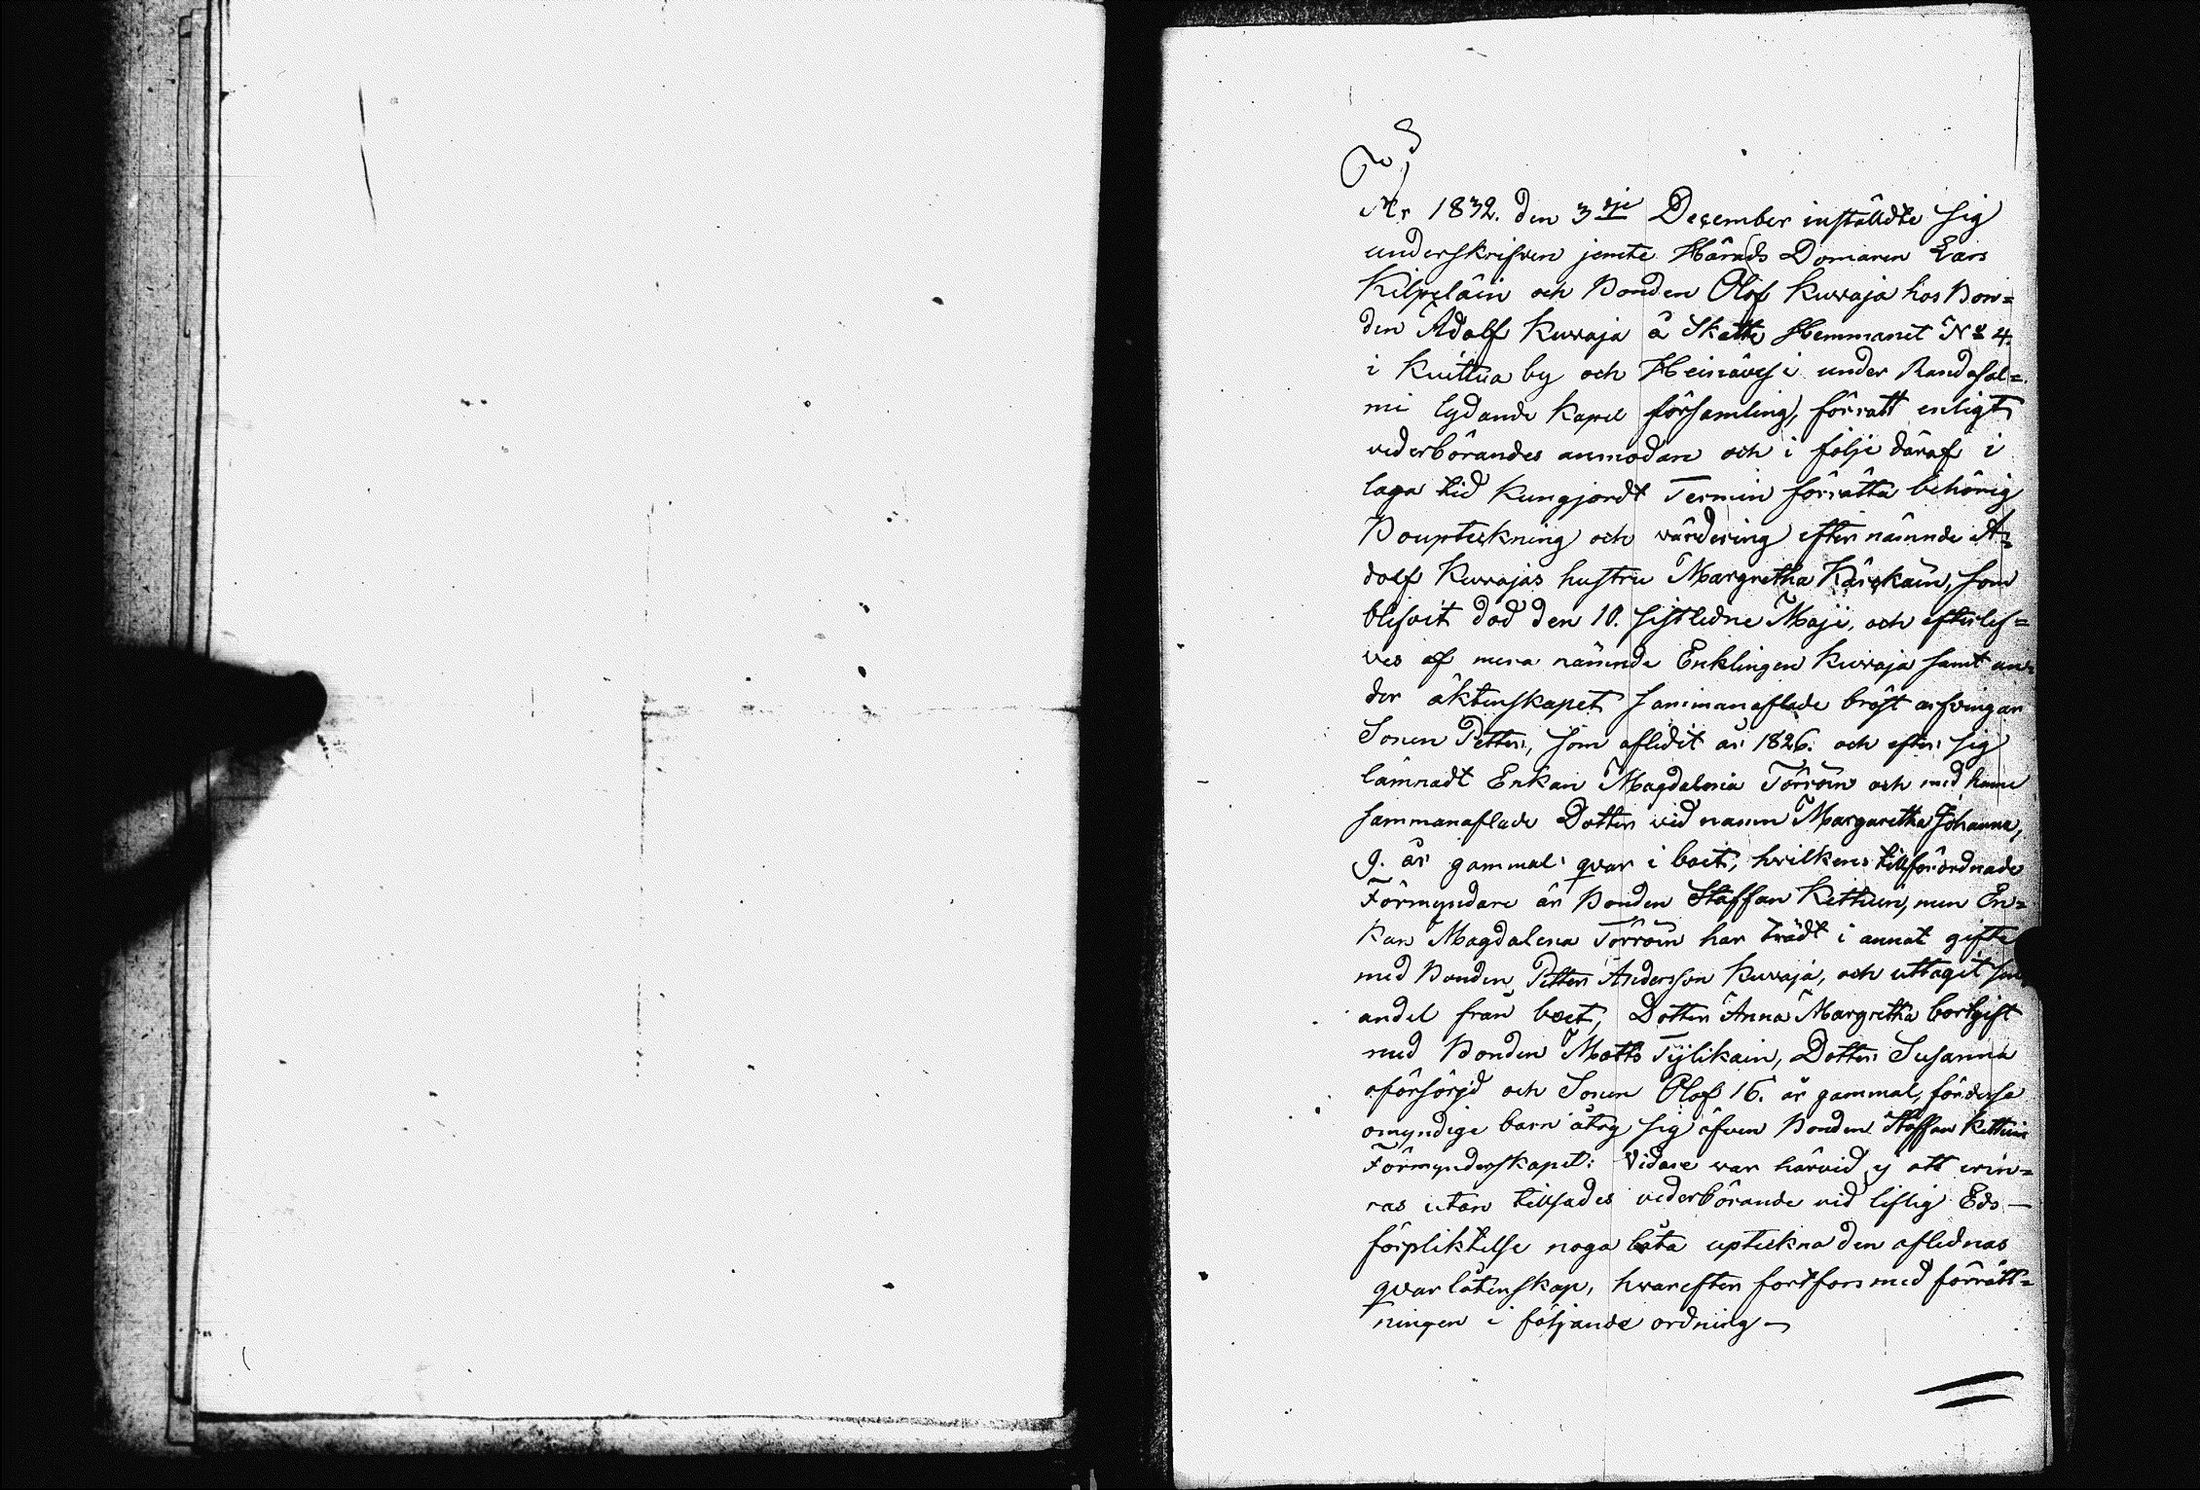 År 1832. den 3dje December instäldte sig
underskrifven jemte Härads Domaren Lars
Kilpeläin och Bonden Olof Kuvaja hos Bon=
den Adolf Kuvaja å Skatte Hemmanet No 4.
i Kuittua by och Heinävesi under Randasal=
mi lydande Kapel församling, förratt enligt
vederbörandes anmodan och i följe däraf i
laga tid Kungjordt Termin förrätta behörig
Boupteckning och värdering efter nämnde A=
dolf Kuvajas hustru Margretha Kärckäin, som
blifvit död den 10. sistledne Maji, och efterlef=
ves af mera nämnde Enklingen Kuvaja samt un=
der äktenskapet sammanaflade bröst arfvingar
Sonen Petter, som aflidit år 1826. och efter sig
lämnadt Enkan Magdalena Törröin och med henne
sammanaflade Dotter vid namn Margaretha Johanna,
9. år gammal qvar i boet, hvilkens tillförordnade
Förmyndare är Bonden Staffan Kettuin, men En=
kan Magdalena Törröin har trädt i annat gifte
med Bonden Petter Andersson Kuvaja, och uttagit sin
andel från boet, Dotter Anna Margretha bortgift
med Bonden Matts Tylikain, Dotter Susanna
oförsörjd och Sonen Olof 16. år gammal, för desse
omyndige barn åtog sig äfven Bonden Staffan Kettuin
Förmynderskapet: Vidare var härvid ej att erin=
ras utan tillsades vederbörande vid liflig Eds—
förpliktelse noga låta uptekna den aflednas
qvarlåtenskap, hvarefter fortfors med förrätt=
ningen i följande ordning—